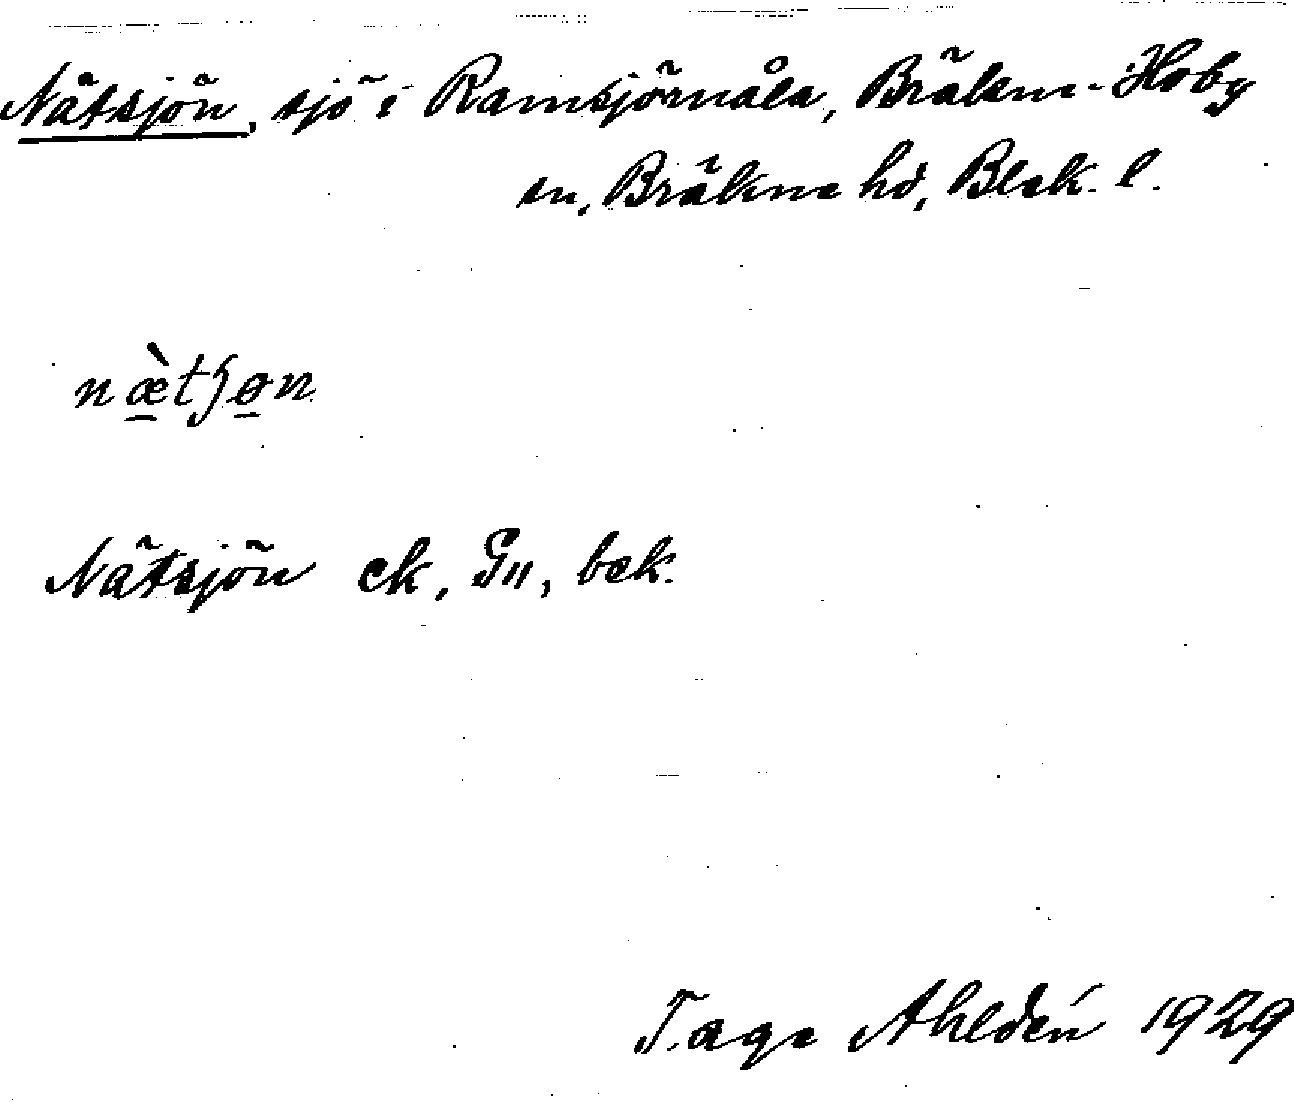 Nätsjön, sjö i Ramsjömåla, Bräkne-Hoby
sn, Bräkne hd, Blek. l.
næ̀tʃøn
Nätsjön ek, G11, bek.
Tage Ahldén 1929